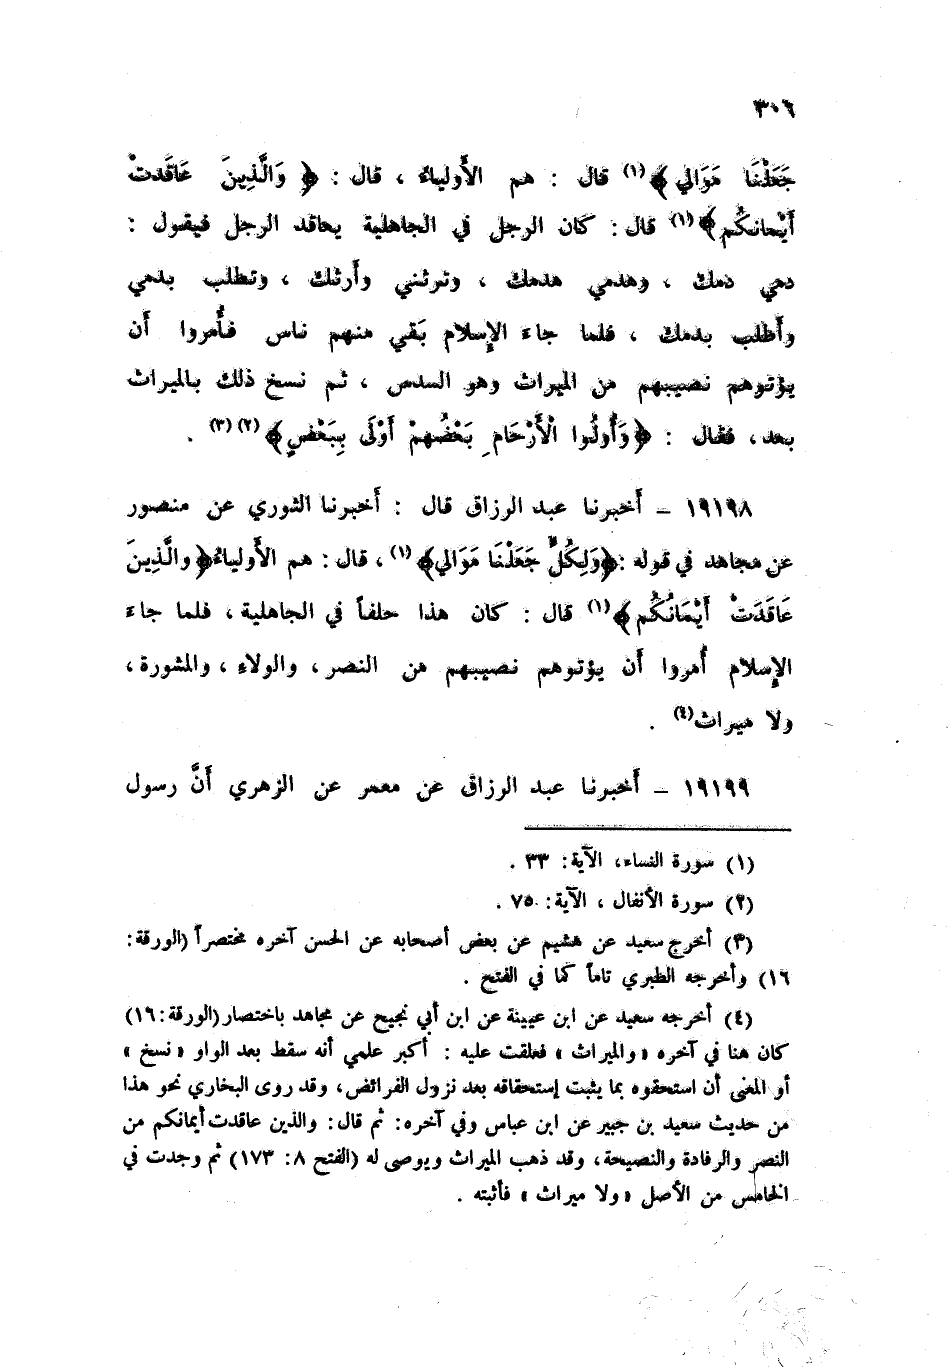 ٣٠٦
جَعَلْنَا مَوَالِي﴾(١) قال : هم الأَولياءُ ، قال : ﴿ وَالَّذِينَ عَاقَدتْ
أَيْمانكُم﴾(١) قال : كان الرجل في الجاهلية يعاقد الرجل فيقول :
دمي دمك ، وهدمي هدمك ، وترثني وأَرثك ، وتطلب بدمي
وأَطلب بدمك ، فلما جاءَ الإِسلام بَقي منهم ناس فأُمروا أَن
يؤتوهم نصيبهم من الميراث وهو السدس ، ثم نسخ ذلك بالميراث
بعد، فقال : ﴿وَأُولُوا الْأَرْحَامِ بَعْضُهمْ أَوْلَى بِبَعْضٍ﴾(٢)(٣) .
١٩١٩٨ – أَخبرنا عبد الرزاق قال : أَخبرنا الثوري عن منصور
عن مجاهد في قوله : ﴿وَلِكُلٍّ جَعَلْنَا مَوَالي﴾(١) ، قال : هم الأَولياءُ﴿والَّذِينَ
عَاقَدَتْ أَيْمَانُكُم﴾(١) قال : كان هذا حلفاً في الجاهلية ، فلما جاءَ
الإِسلام أُمروا أَن يؤتوهم نصيبهم من النصر ، والولاءِ ، والمشورة ،
ولا ميراث(٤) .
١٩١٩٩ – أَخبرنا عبد الرزاق عن معمر عن الزهري أَنَّ رسول
(١) سورة النساء، الآية: ٣٣ .
(٢) سورة الأنفال ، الآية: ٧٥ .
(٣) أخرج سعيد عن هشيم عن بعض أصحابه عن الحسن آخره مختصراً (الورقة:
١٦) وأخرجه الطبري تاماً كما في الفتح .
(٤) أخرجه سعيد عن ابن عيينة عن ابن أبي نجيح عن مجاهد باختصار(الورقة:١٦)
كان هنا في آخره «والميراث» فعلقت عليه : أكبر علمي أنه سقط بعد الواو «نسخ»
أو المغنى أن استحقوه بما يثبت إستحقاقه بعد نزول الفرائض، وقد روى البخاري نحو هذا
من حديث سعيد بن جبير عن ابن عباس وفي آخره: ثم قال: والذين عاقدت أيمانكم من
النصر والرفادة والنصيحة، وقد ذهب الميراث ويوصى له (الفتح ٨: ١٧٣) ثم وجدت في
الخامس من الأصل «ولا ميراث» فأثبته .